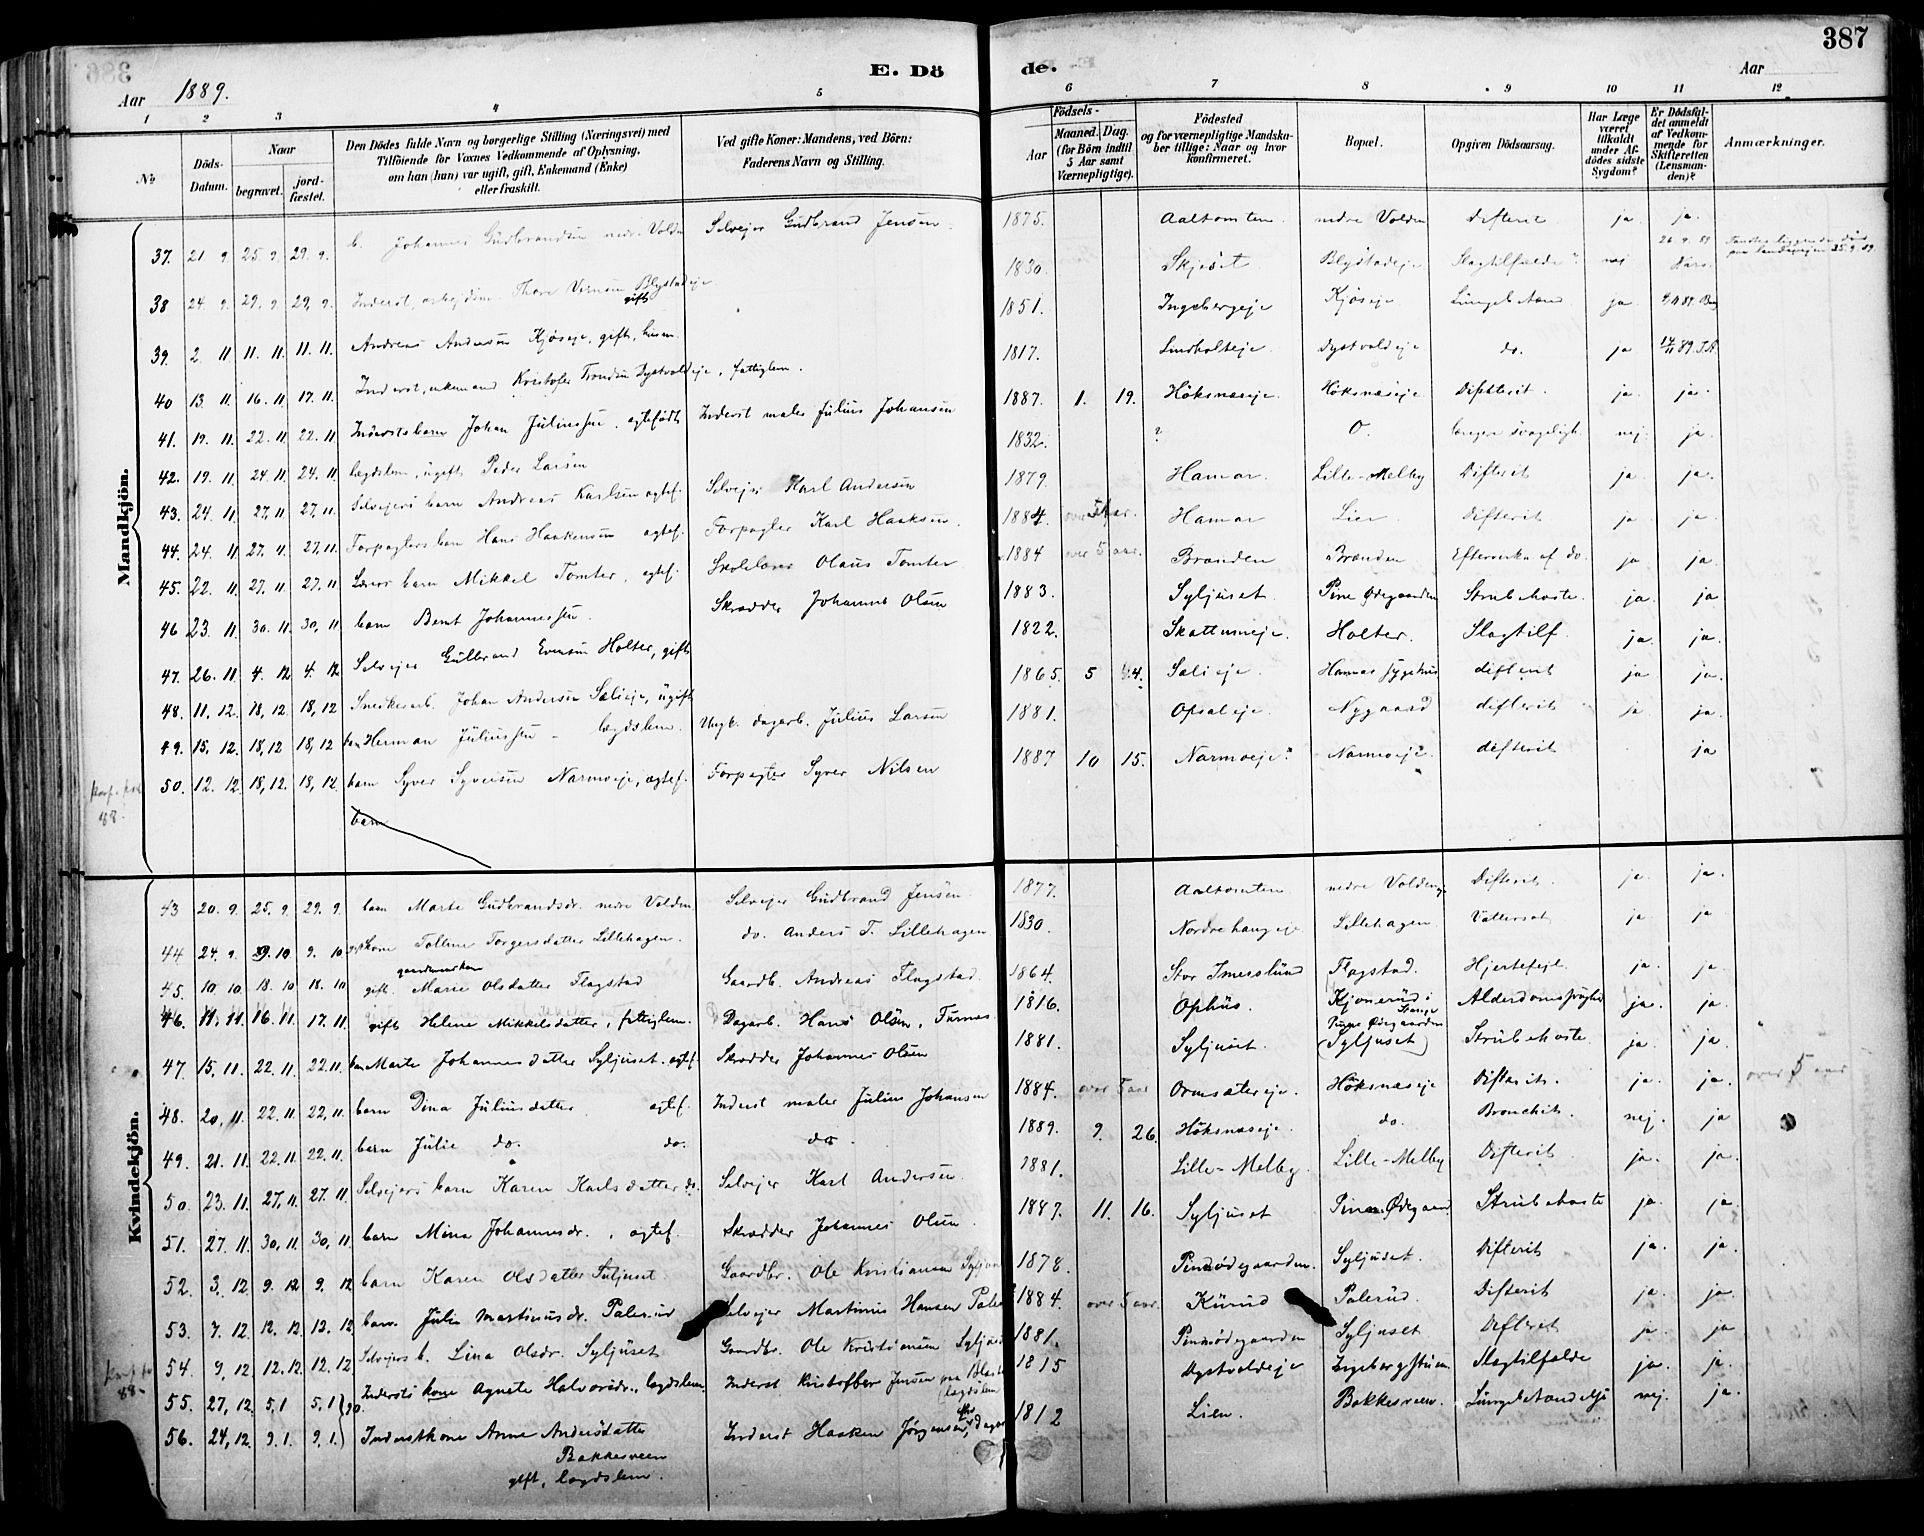 387
E. Döde.
Aar 1889.
Aar
1 2 3 4 5 6 7 8 9 10 11 12
No
Döds-Datum.
Naar
begravet.
jordfæstet.
Den Dödes fulde Navn og borgerlige Stilling (Næringsvei) med
Tilföiende for Voxnes Vedkommende af Oplysning,
om han (hun) var ugift, gift, Enkemand (Enke)
eller fraskilt.
Ved gifte Koner: Mandens, ved Börn:
Faderens Navn og Stilling.
Födsels-
Aar
Maaned. Dag.
(for Börn indtil
5 Aar samt
Værnepligtige).
Födested
og for værnepligtige Mandskaber tillige: Naar og hvor
konfirmeret.
Bopæl.
Opgiven Dödsaarsag.
Har Læge
været
tilkaldt
under Afdödes sidste
Sygdom?
Er Dödsfaldet anmeldt
af Vedkommende for
Skifteretten
(Lensmanden)?
Anmærkninger.
Mandkjön.
37. 21. 9. 25. 9. 29. 9. b. Johannes Gudbrandsen nedre Volden Selveier Gudbrand Jensen 1875. Aaltomten nedre Volden Difterit ja ja.
38 24. 9. 29. 9. 29. 9. Inderst, arbeidsm. Thore Blystadeje gift 1830. Skjeset Blystadeje Slagtilfælde? nej 26. 9. 89
39. 2. 11. 11. 11. 11. 11. Andreas Andersen Kjöseje, gift, husm. 1851. Ingebergeje Kjöseje Lungebetænd. ja
40 13. 11. 16. 11 17. 11. Inderst, enkemand Kristofer Trondsen Dystvoldeje, fattiglem. 1817. Lindholteje Dystvoldeje do. ja
41. 19. 11. 22. 11. 22. 11. Inderstsbarn Johan Juliussen, egtefödt Inderst maler Julius Johansen 1887. 1. 19. Höksnæseje. Höksnæseje Difterit. ja. ja.
42. 19. 11. 24. 11. 24. 11. lægdslem, ugift Peder Larsen 1832. ? O. længere svageligh. nej. ja.
43. 24. 11. 27. 11 27. 11. Selveiers barn Andreas Karlsen egtef. Selvejer Karl Andersen 1879. Hamar. Lille-Melby Difterit ja ja.
44. 24. 11. 27. 11. 27. 11. Forpagters barn Hans Haakensen egtef. Forpagter Karl Haaksen. 1884. over 5 aar. Hamar Lier Difterit ja ja.
45. 22. 11. 27. 11. 27. 11 Lærers barn Mikkel Tomter, egtef. Skolelærer Olaus Tomter 1884 over 5 aar. Brænden Brænden Eftervirkn af do. ja ja.
46 23. 11. 30. 11. 30. 11 barn Bernt Johannessen. Skrædder Johannes Olsen 1883. Syljuset. Pine Ødegaarden Strubehoste. ja. ja
47. 26. 11. 4. 12 4. 12 Selvejer Gulbrand Evensen Holter, gift 1822. Skattumeje. Holter. Slagtilf. ja. ja.
48. 11. 12. 18, 12 18, 12 Snedkerarb. Johan Andersen Sælieje, ugift 1865. 5 24. Sælieje. Hamar sygehus difterit ja ja.
49. 15. 12. 18, 12 18, 12 barn Herman Juliussen - lægdslem. Ungk. dagarb. Julius Larsen 1881. Opsaleje. Nygaard difterit ja ja.
50. 12. 12. 18, 12. 18, 12. barn Syver Syversen Narmoeje, egtef. Forpagter Syver Nilsen 1887 10 15. Narmoeje. Narmoeje. difterit ja
88.
barn
Kvindekjön.
43 20. 9. 25. 9. 29. 9. barn Marte Gudbrandsdr. nedre Volden Selvejer Gudbrand Jensen 1877. Aaltomten nedre Volden Difterit. ja. ja.
44 24. 9. 9. 10 9. 10 kone Torgersdatter Lillehagen. do. Anders T. Lillehagen 1830. Nordrehaugeje Lillehagen. Vattersot ja ja
gaardmandskone
45. 10. 10. 18. 10 18. 10 gift. Marie Olsdatter Flagstad Gaardb. Andreas Flagstad. 1864. Stor Imeslund Flagstad. Hjertefejl. ja. ja.
46. 11. 11. 16. 11. 17. 11. gift Helene Mikkelsdatter, fattiglem. Dagarb. Hans Olsen, Furnes 1816. Ophus. Kjonerud i Stange Alderdomssvaghed ja. ja.
47. 15, 11. 22. 11. 22. 11. barn Marte Johannesdatter Syljuset. egtef. Skrædder Johannes Olsen 1881. Syljuset. Pine Ødegaarden (Syljuset) Strubehoste ja. ja.
48. 20, 11. 22. 11. 22, 11. barn Dina Juliusdatter egtef. Inderst maler Julius Johansen 1884. over 5 aar Ormsætereje. Höksnæseje Difterit. ja. ja. over 5 aar
49. 21. 11. 22. 11. 22. 11. barn Julie do. do. do. 1889. 9. 26. Höksnæseje. do. Bronchit. nej. ja
50. 23. 11. 27. 11. 27. 11. Selvejers barn Karen Karlsdatter do. Selvejer Karl Andersen. 1881. Lille-Melby. Lille-Melby Difterit ja. ja.
51. 27. 11. 30, 11. 30, 11. barn Mina Johannesdr., egtef. Skrædder Johannes Olsen. 1887. 11. 16. Syljuset Pine Ødegaard Strubehoste ja. ja.
52. 3, 12. 9. 12 9. 12 barn Karen Olsdatter Suljuset. Gaardbr. Ole Kristiansen 1878. Pineødegaarden. Syljuset. Difterit ja. ja.
53. 7. 12. 12. 12. 12. 12. barn. Julie Martinusdr. Palerud Selvejer Martinus Hansen 1884. over 5 aar. Kurud Palerud. Difterit ja. ja.
54. 9, 12. 12. 12. 12. 12 Selvejers b. Lina Olsdr. Syljuset Gaardbr. Ole Kristiansen 1881. Pineødegaarden Syljuset Difterit ja. ja
55. 27, 12. 5, 1 5, 1 90. Inderstskone Agnete Halvorsdr., lægdslem. Inderst Kristoffer Jensen lægdslem 1815 Dystvoldeje Slagtilfælde ja. ja.
56. 24, 12. 9. 1. 9. 1. Inderstkone Anne Andersdatter Inderst Haaken Jörgensen 1812 Lien. Bakkesveen. nej. ja.
Bakkesveen
gift, lægdslem.
88.